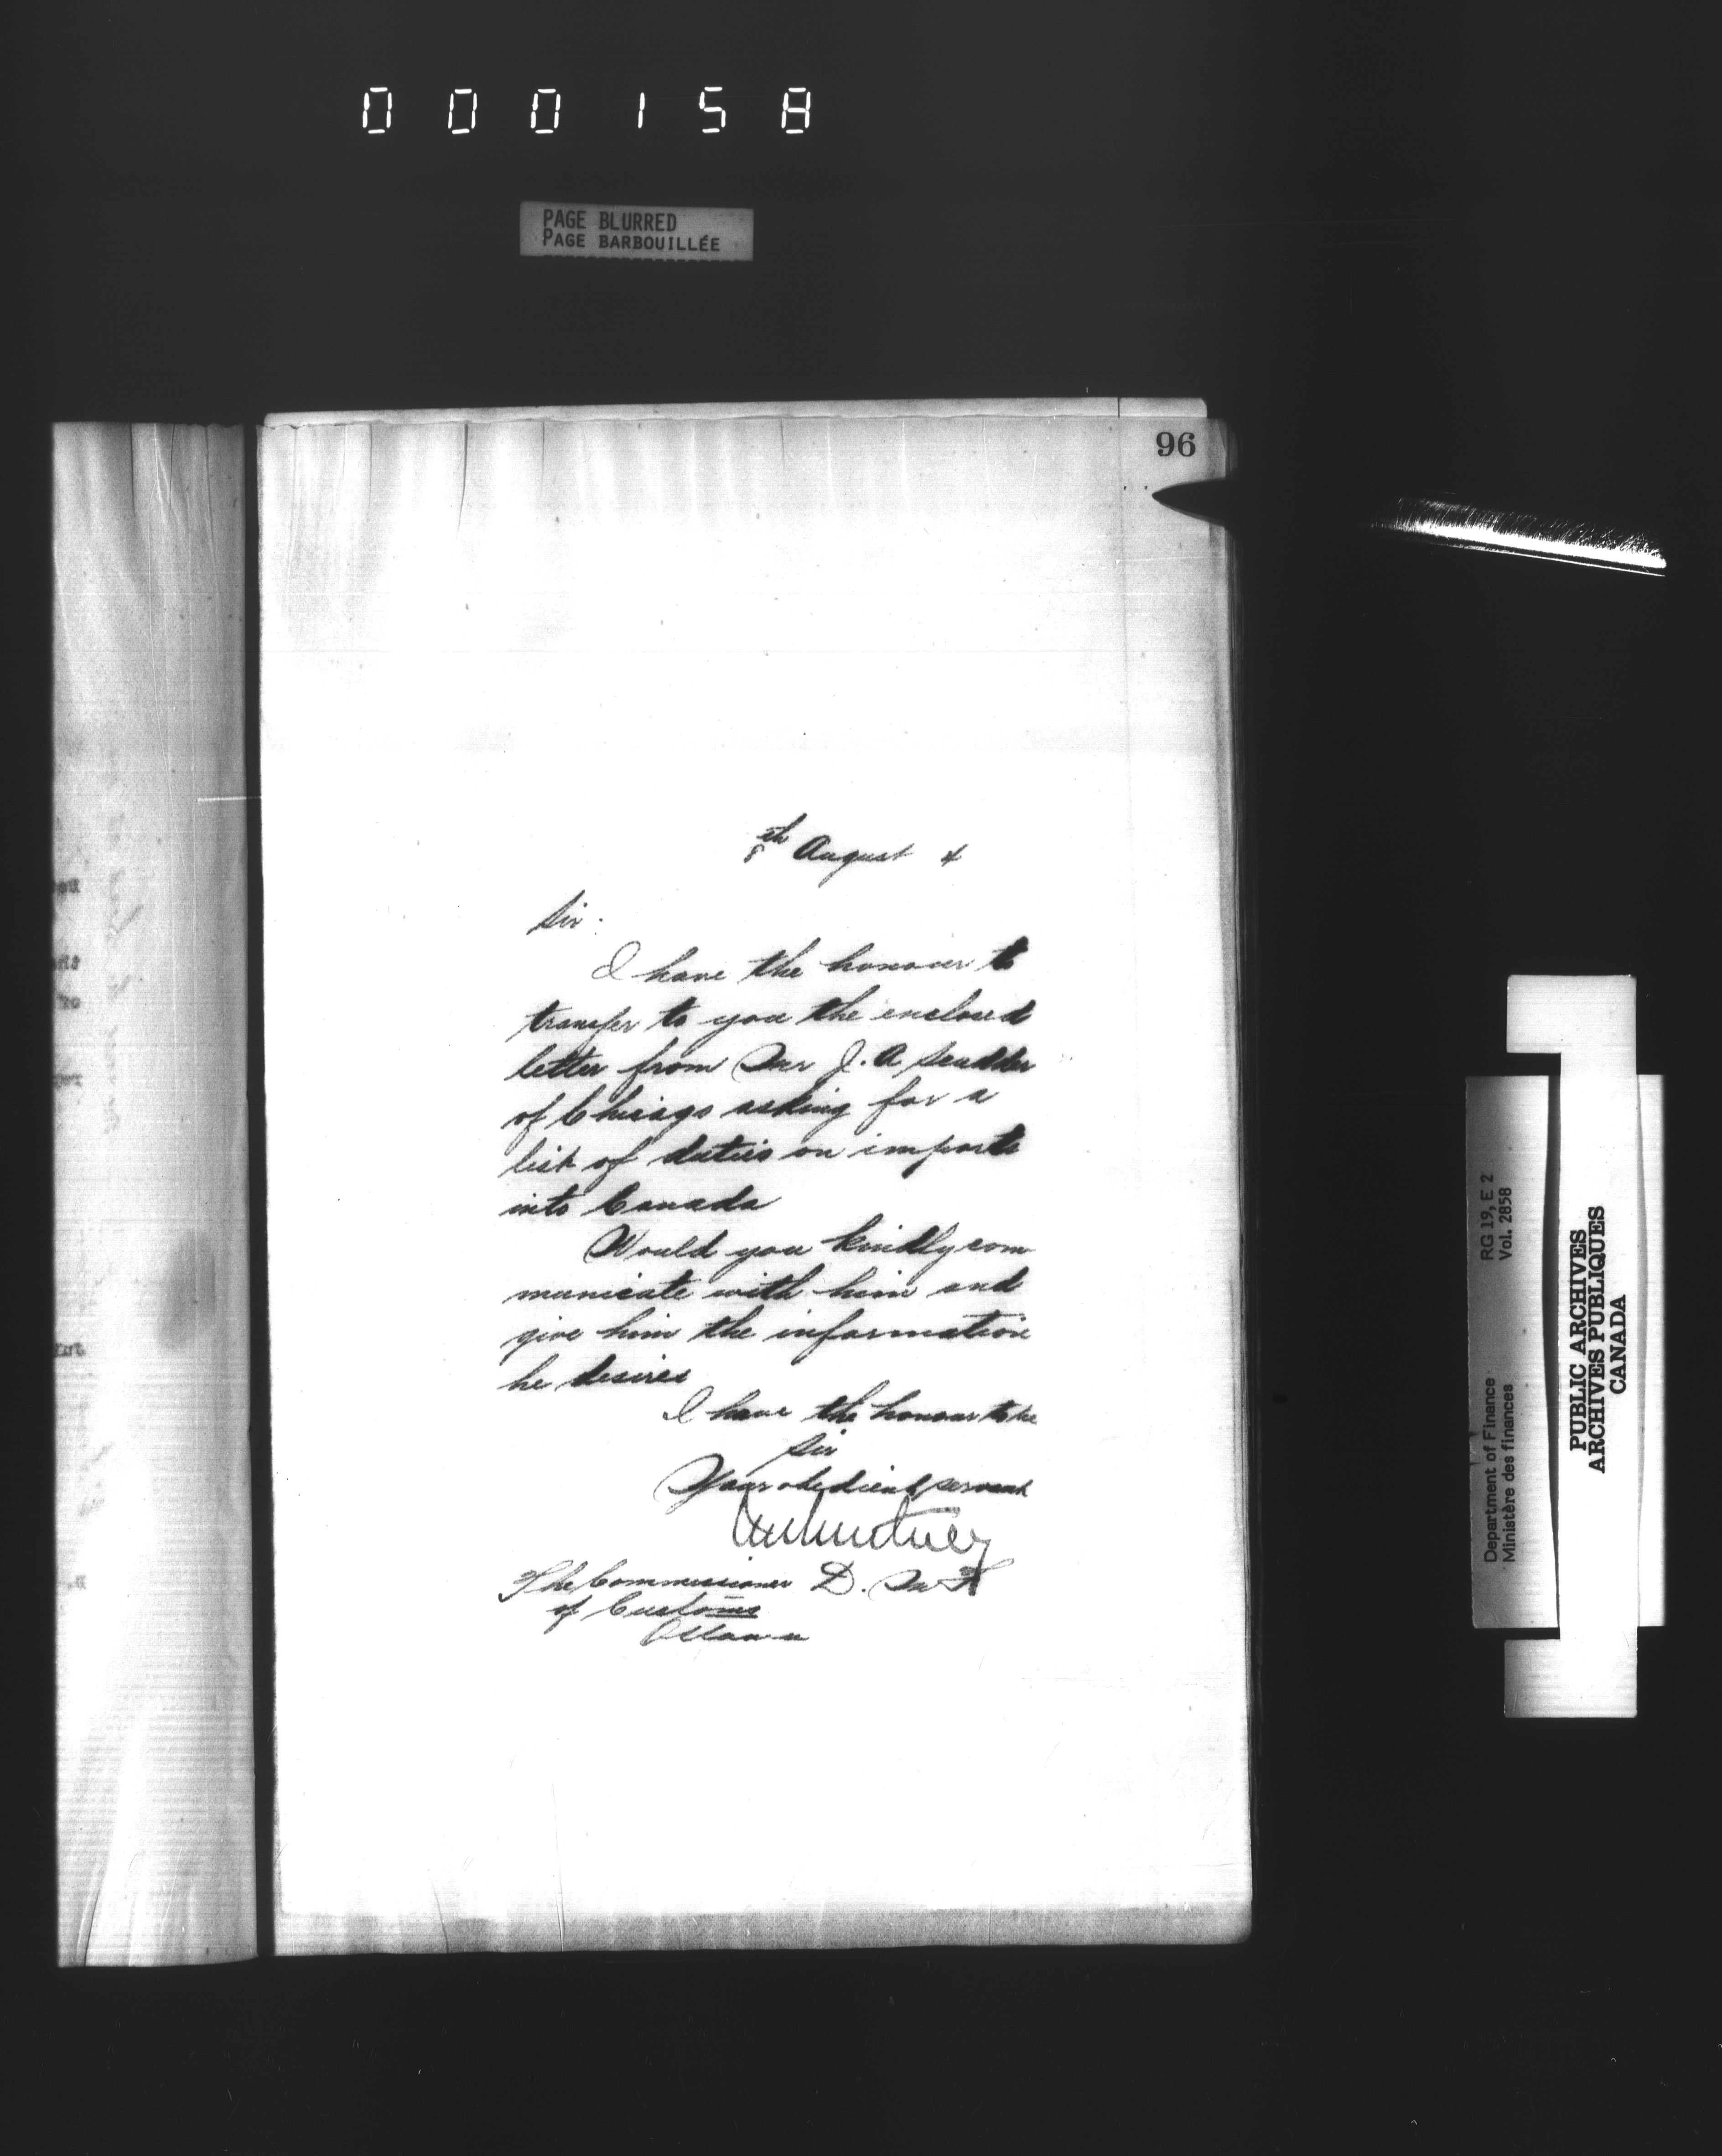 000158
PAGE BLURRED
PAGE BARBOUILLÉE
96
8th August 4
Sir:
I have the honour to
transfer to you the enclosed
letter from Mr J. A Scudder
of Chicago asking for a
list of duties on imports
into Canada
Would you kindly com
municate with him and
give him the information
he desires
I have the honour to be
Sir
Your obedient servant
D. M F
The Commissioner
of Customs
Ottawa
RG 19, E 2
Vol. 2858
Department of Finance
Ministère des finances
PUBLIC ARCHIVES
ARCHIVES PUBLIQUES
CANADA